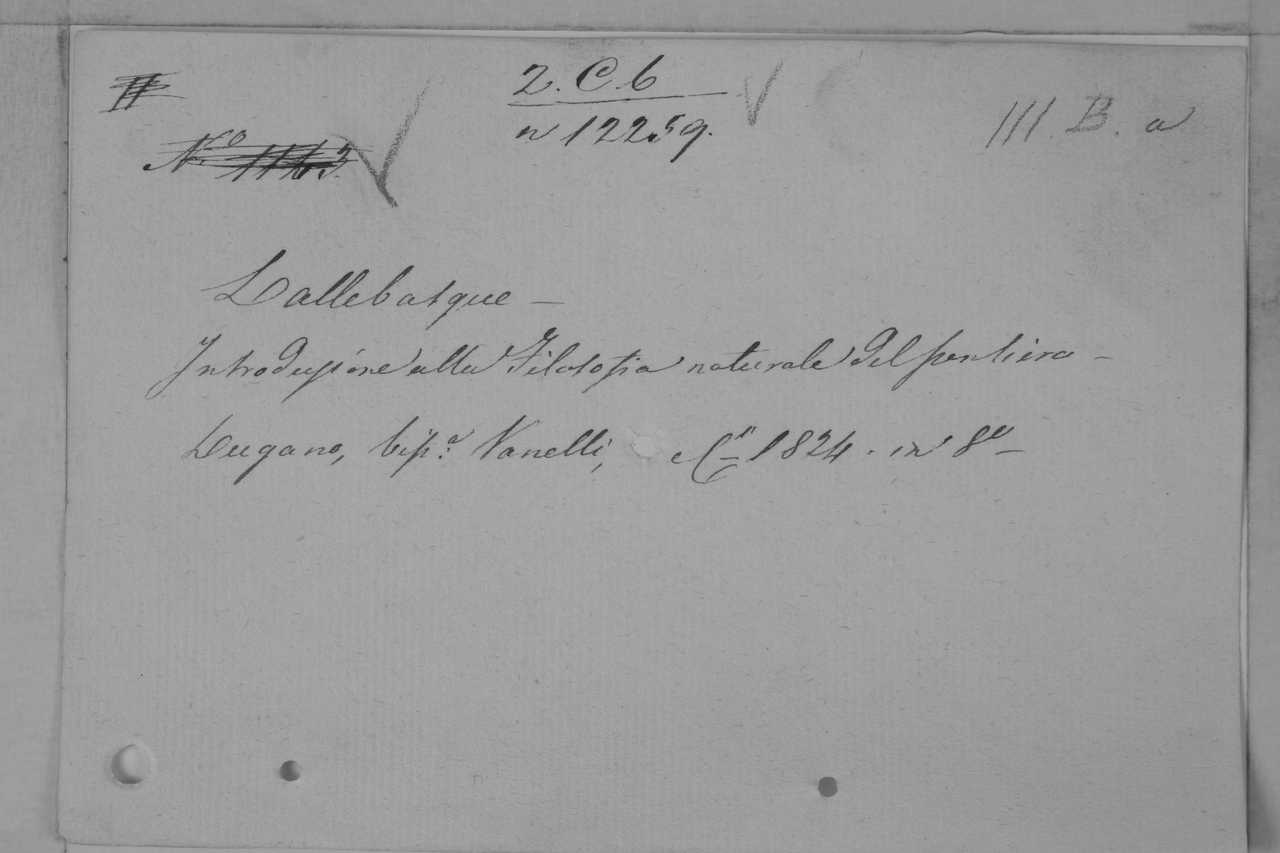 2. C. 6
n 12259.
III. B. a
Lallebasque —
Introduzione alla Filosofia naturale del pensiero —
Lugano, tip.ª Vanelli, Cⁱ 1824. in 8º —